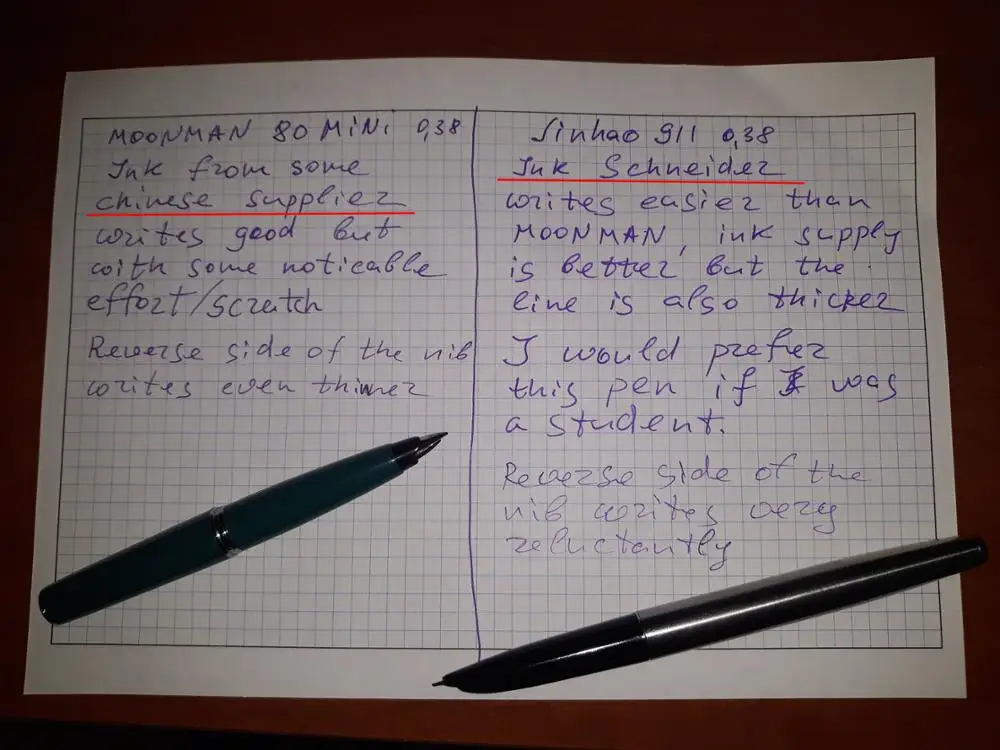 MOONMAN 80 MINI 0,38
Ink from some
chinese supplier
writes good but
with some noticable
effort/scratch
Reverse side of the nib
writes even thinner
Jinhao 911 0,38
Ink Schneider
writes easier than
MOONMAN, ink supply
is better but the
line is also thicker
I would prefer
this pen if I was
a student.
Reverse side of the
nib writes very
reluctantly